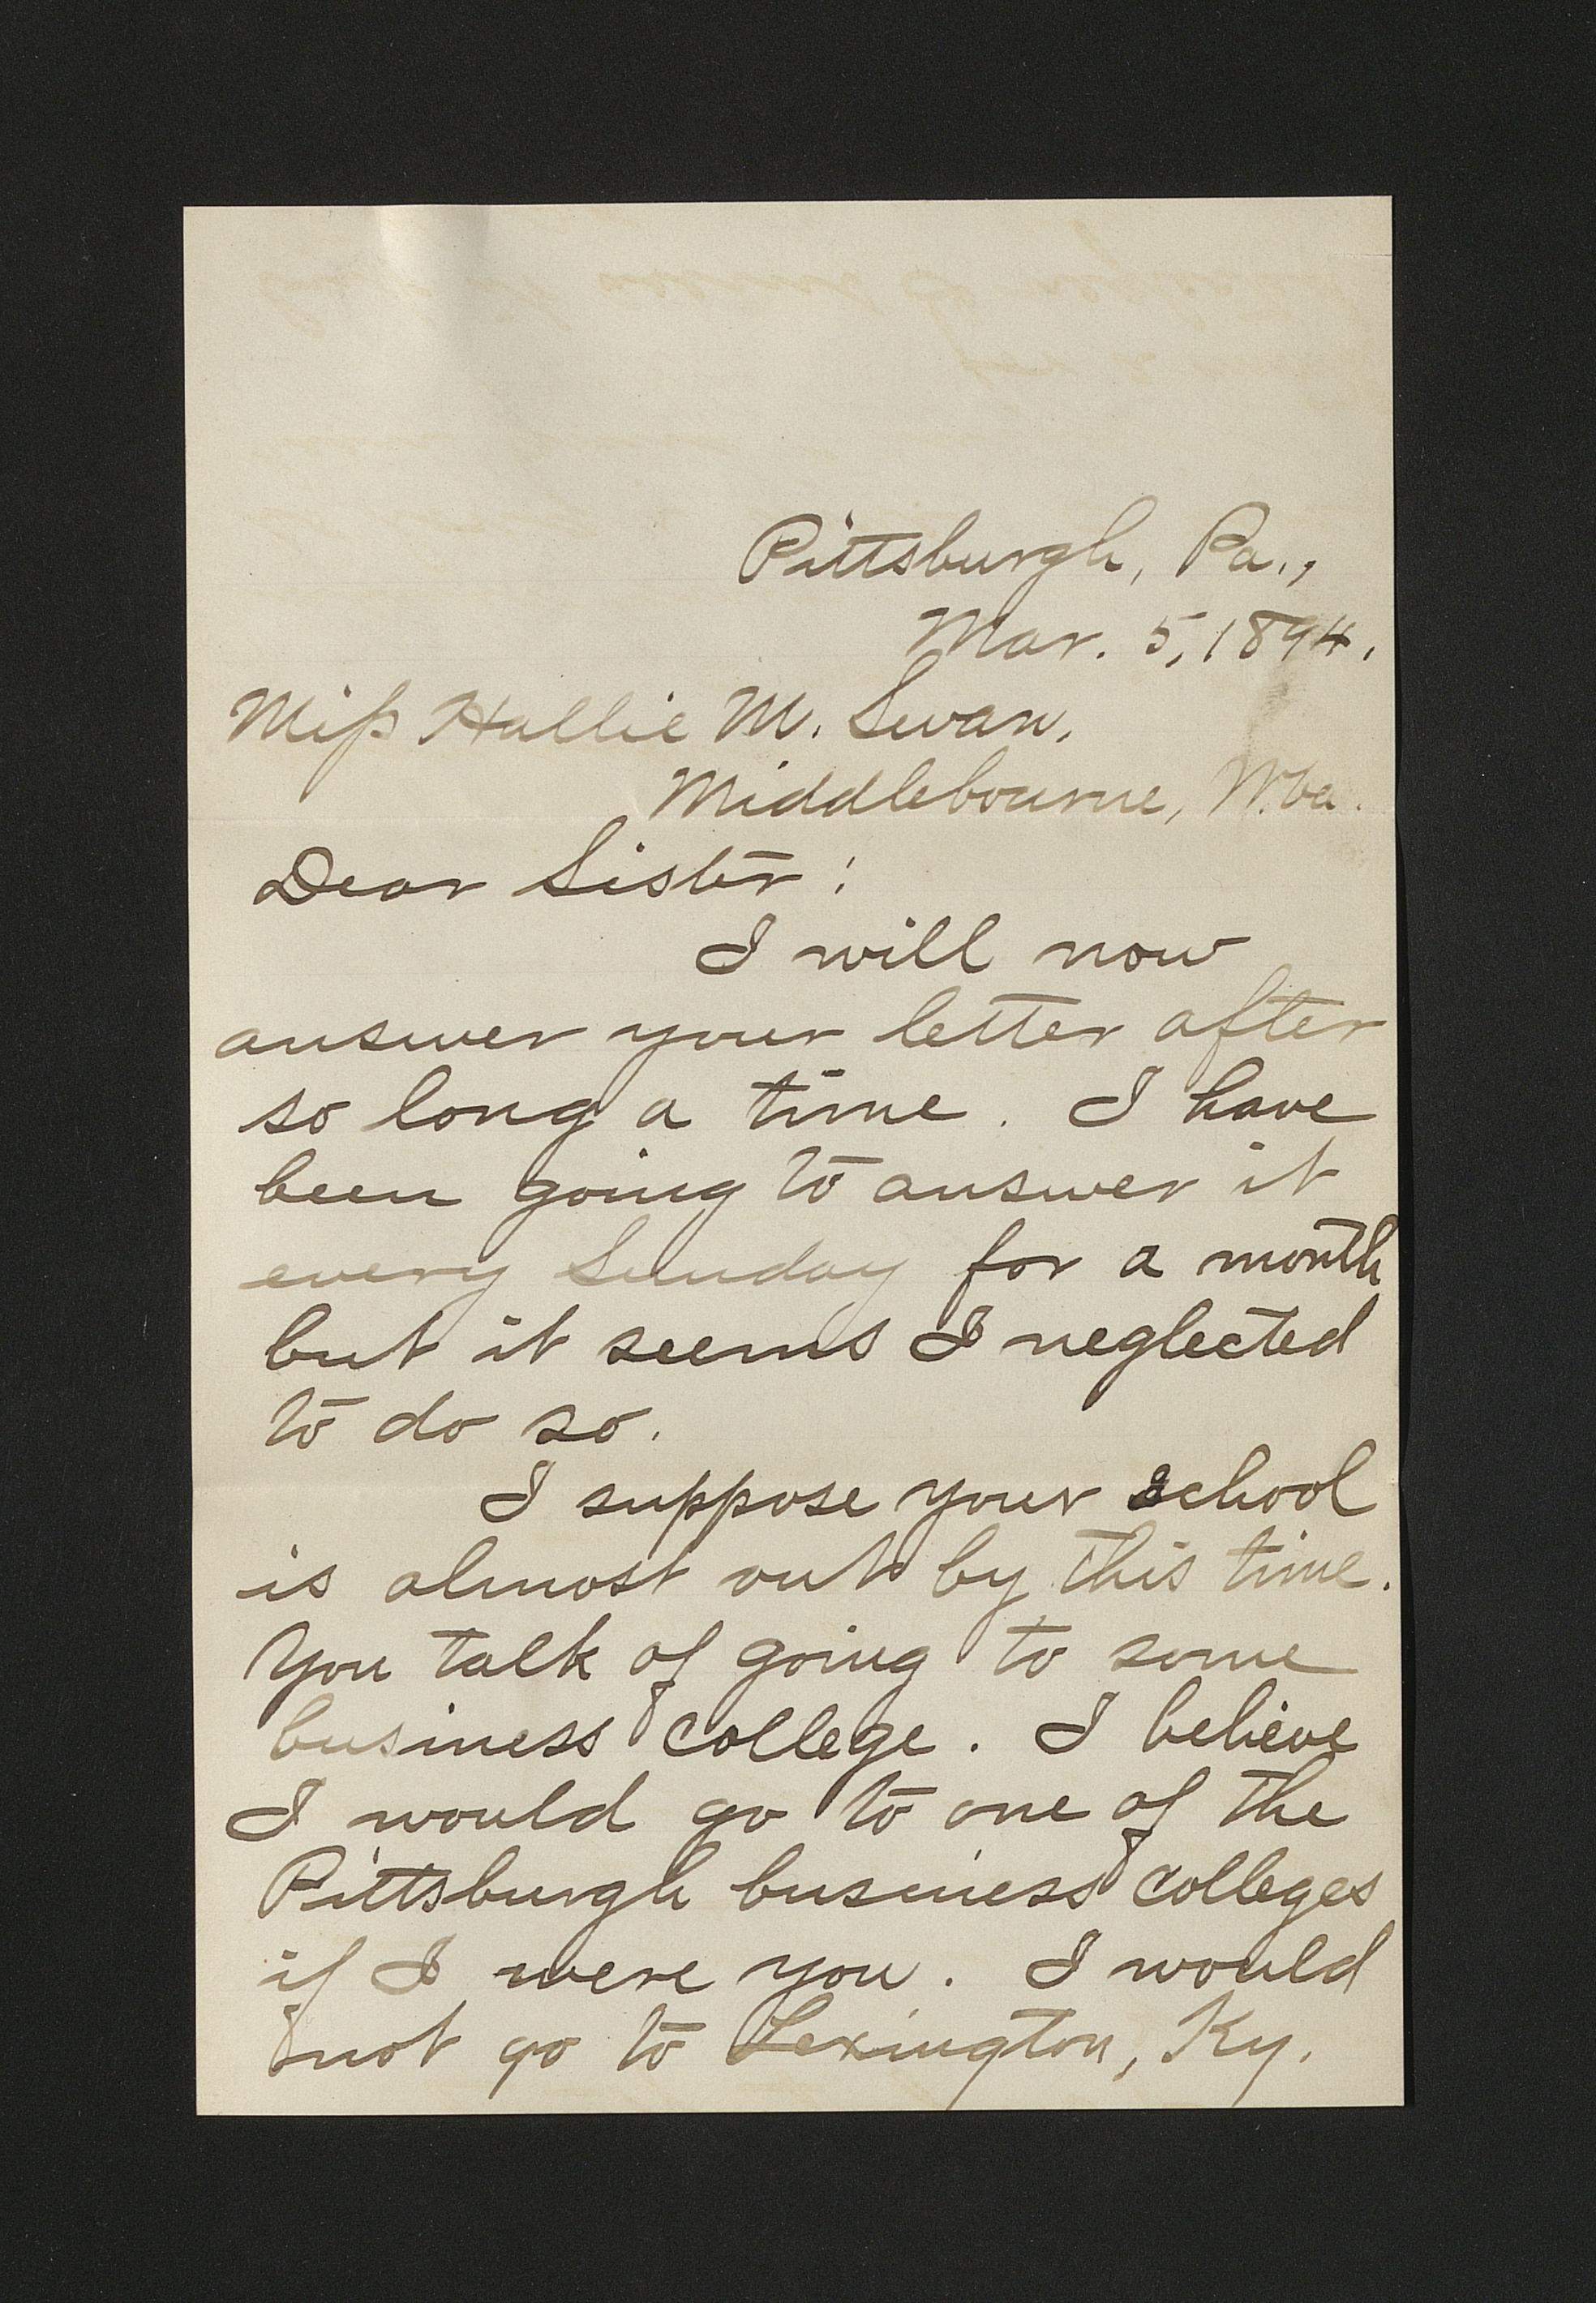 Pittsburgh, Pa.,
Mar. 5, 1894.
Miss Hallie M. Swan,
Middlebourne, W.Va.
Dear Sister:
I will now
answer your letter after
so long a time. I have
been going to answer it
every Sunday for a month
but it seems I neglected
to do so.
I suppose your school
is almost out by this time.
You talk of going to some
business college. I believe
I would go to one of the
Pittsburgh business colleges
if I were you. I would
not go to Lexington, Ky.